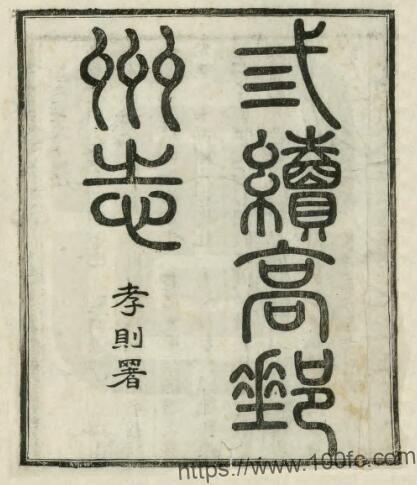 弎續高郵
州志
孝則署
https://www.100fc.com